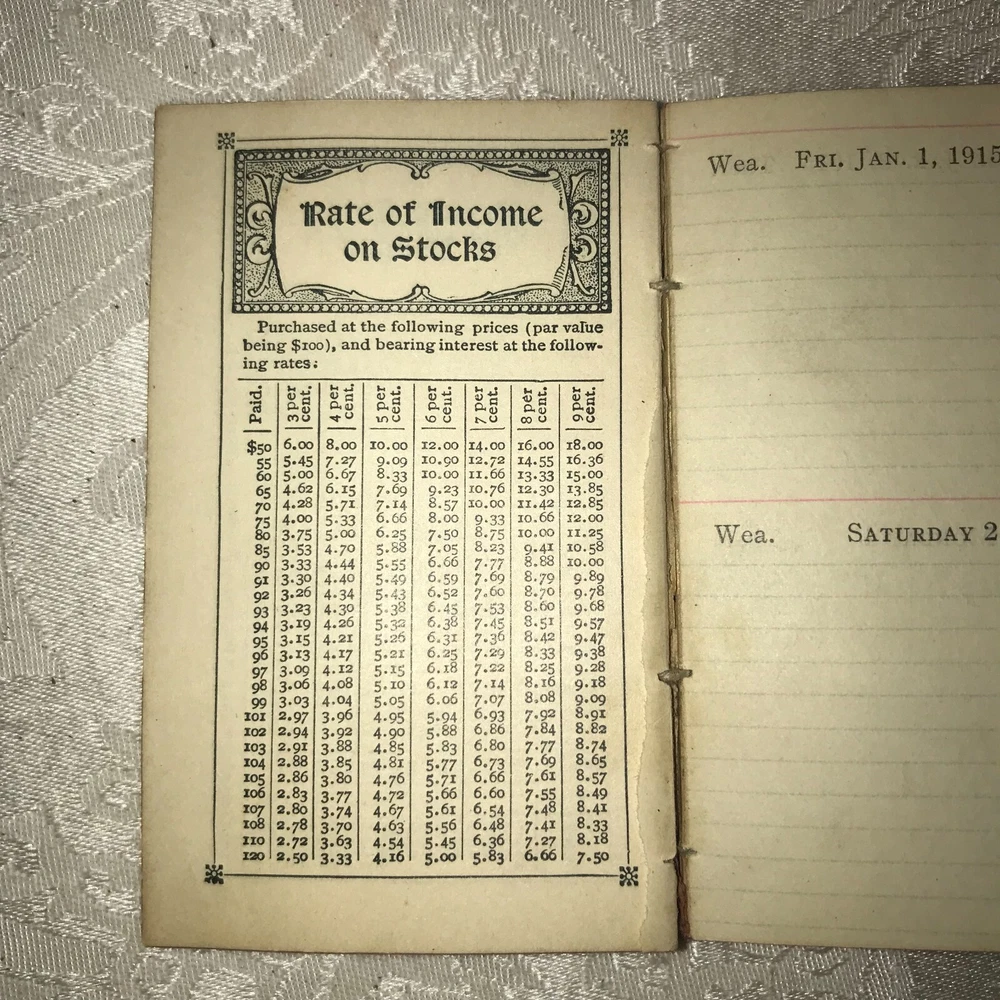 Rate of Income
on Stocks
Purchased at the following prices (par value
being $100), and bearing interest at the follow-
ing rates:
Paid. 3 per cent. 4 per cent. 5 per cent. 6 per cent. 7 per cent. 8 per cent. 9 per cent.
$50 6.00 8.00 10.00 12.00 14.00 16.00 18.00
55 5.45 7.27 9.09 10.90 12.72 14.55 16.36
60 5.00 6.67 8.33 10.00 11.66 13.33 15.00
65 4.62 6.15 7.69 9.23 10.76 12.30 13.85
70 4.28 5.71 7.14 8.57 10.00 11.42 12.85
75 4.00 5.33 6.66 8.00 9.33 10.66 12.00
80 3.75 5.00 6.25 7.50 8.75 10.00 11.25
85 3.53 4.70 5.88 7.05 8.23 9.41 10.58
90 3.33 4.44 5.55 6.66 7.77 8.88 10.00
91 3.30 4.40 5.49 6.59 7.69 8.79 9.89
92 3.26 4.34 5.43 6.52 7.60 8.70 9.78
93 3.23 4.30 5.38 6.45 7.53 8.60 9.68
94 3.19 4.26 5.32 6.38 7.45 8.51 9.57
95 3.15 4.21 5.26 6.31 7.36 8.42 9.47
96 3.13 4.17 5.21 6.25 7.29 8.33 9.38
97 3.09 4.12 5.15 6.18 7.22 8.25 9.28
98 3.06 4.08 5.10 6.12 7.14 8.16 9.18
99 3.03 4.04 5.05 6.06 7.07 8.08 9.09
101 2.97 3.96 4.95 5.94 6.93 7.92 8.91
102 2.94 3.92 4.90 5.88 6.86 7.84 8.82
103 2.91 3.88 4.85 5.83 6.80 7.77 8.74
104 2.88 3.85 4.81 5.77 6.73 7.69 8.65
105 2.86 3.80 4.76 5.71 6.66 7.61 8.57
106 2.83 3.77 4.72 5.66 6.60 7.55 8.49
107 2.80 3.74 4.67 5.61 6.54 7.48 8.41
108 2.78 3.70 4.63 5.56 6.48 7.41 8.33
110 2.72 3.63 4.54 5.45 6.36 7.27 8.18
120 2.50 3.33 4.16 5.00 5.83 6.66 7.50
Wea. FRI. JAN. 1, 1915
Wea. SATURDAY 2